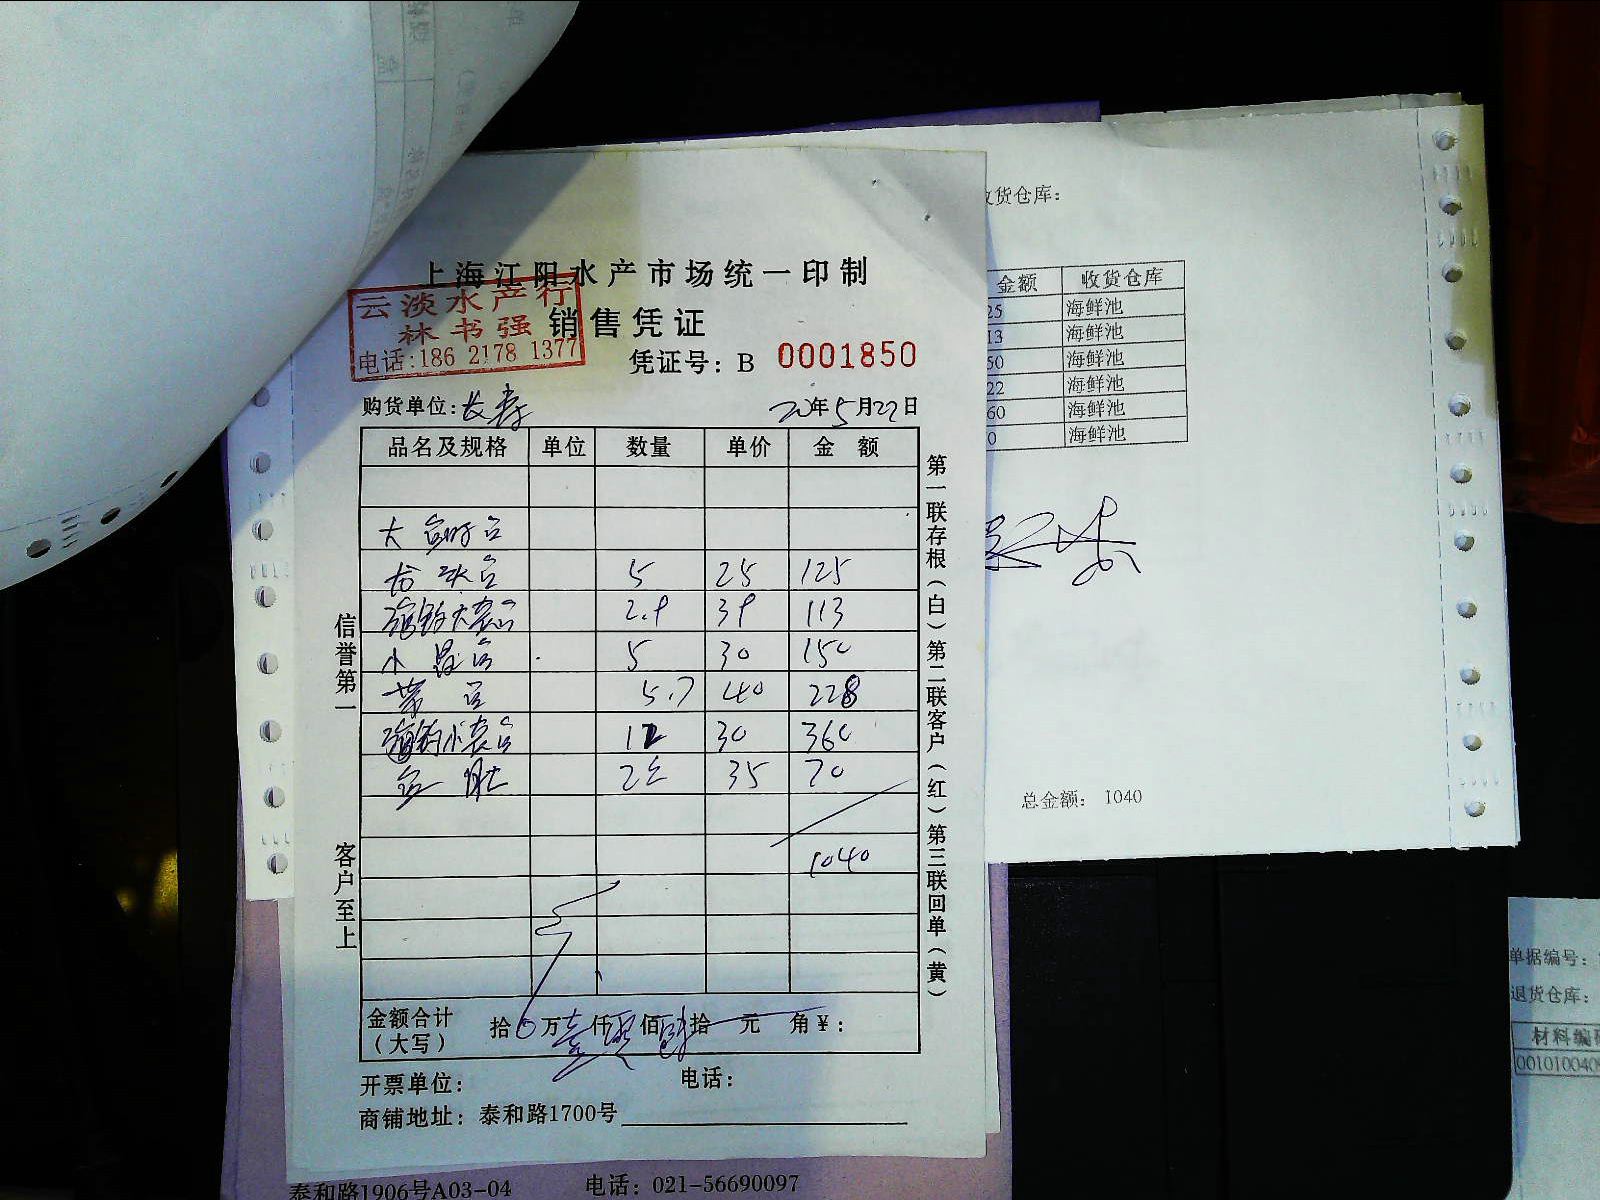 上海江阳水产市场统一印制
云淡水产行
林书强
电话:186 2178 1377
销售凭证
凭证号: B 0001850
购货单位:长寿
20年5月22日
品名及规格 单位 数量 单价 金额
5 25 125
2.9 39 113
小 5 30 150
5.7 40 228
12 30 360
鱼肚 2 35 70
1040
金额合计(大写) 拾0万壹仟零佰肆拾元角¥:
开票单位: 电话:
商铺地址: 泰和路1700号
信誉第一
客户至上
第一联存根(白)第二联客户(红)第三联回单(黄)
收货仓库:
金额 收货仓库
25 海鲜池
13 海鲜池
50 海鲜池
22 海鲜池
60 海鲜池
0 海鲜池
总金额: 1040
泰和路1906号A03-04 电话: 021-56690097
单据编号:
退货仓库:
材料编码
00101004